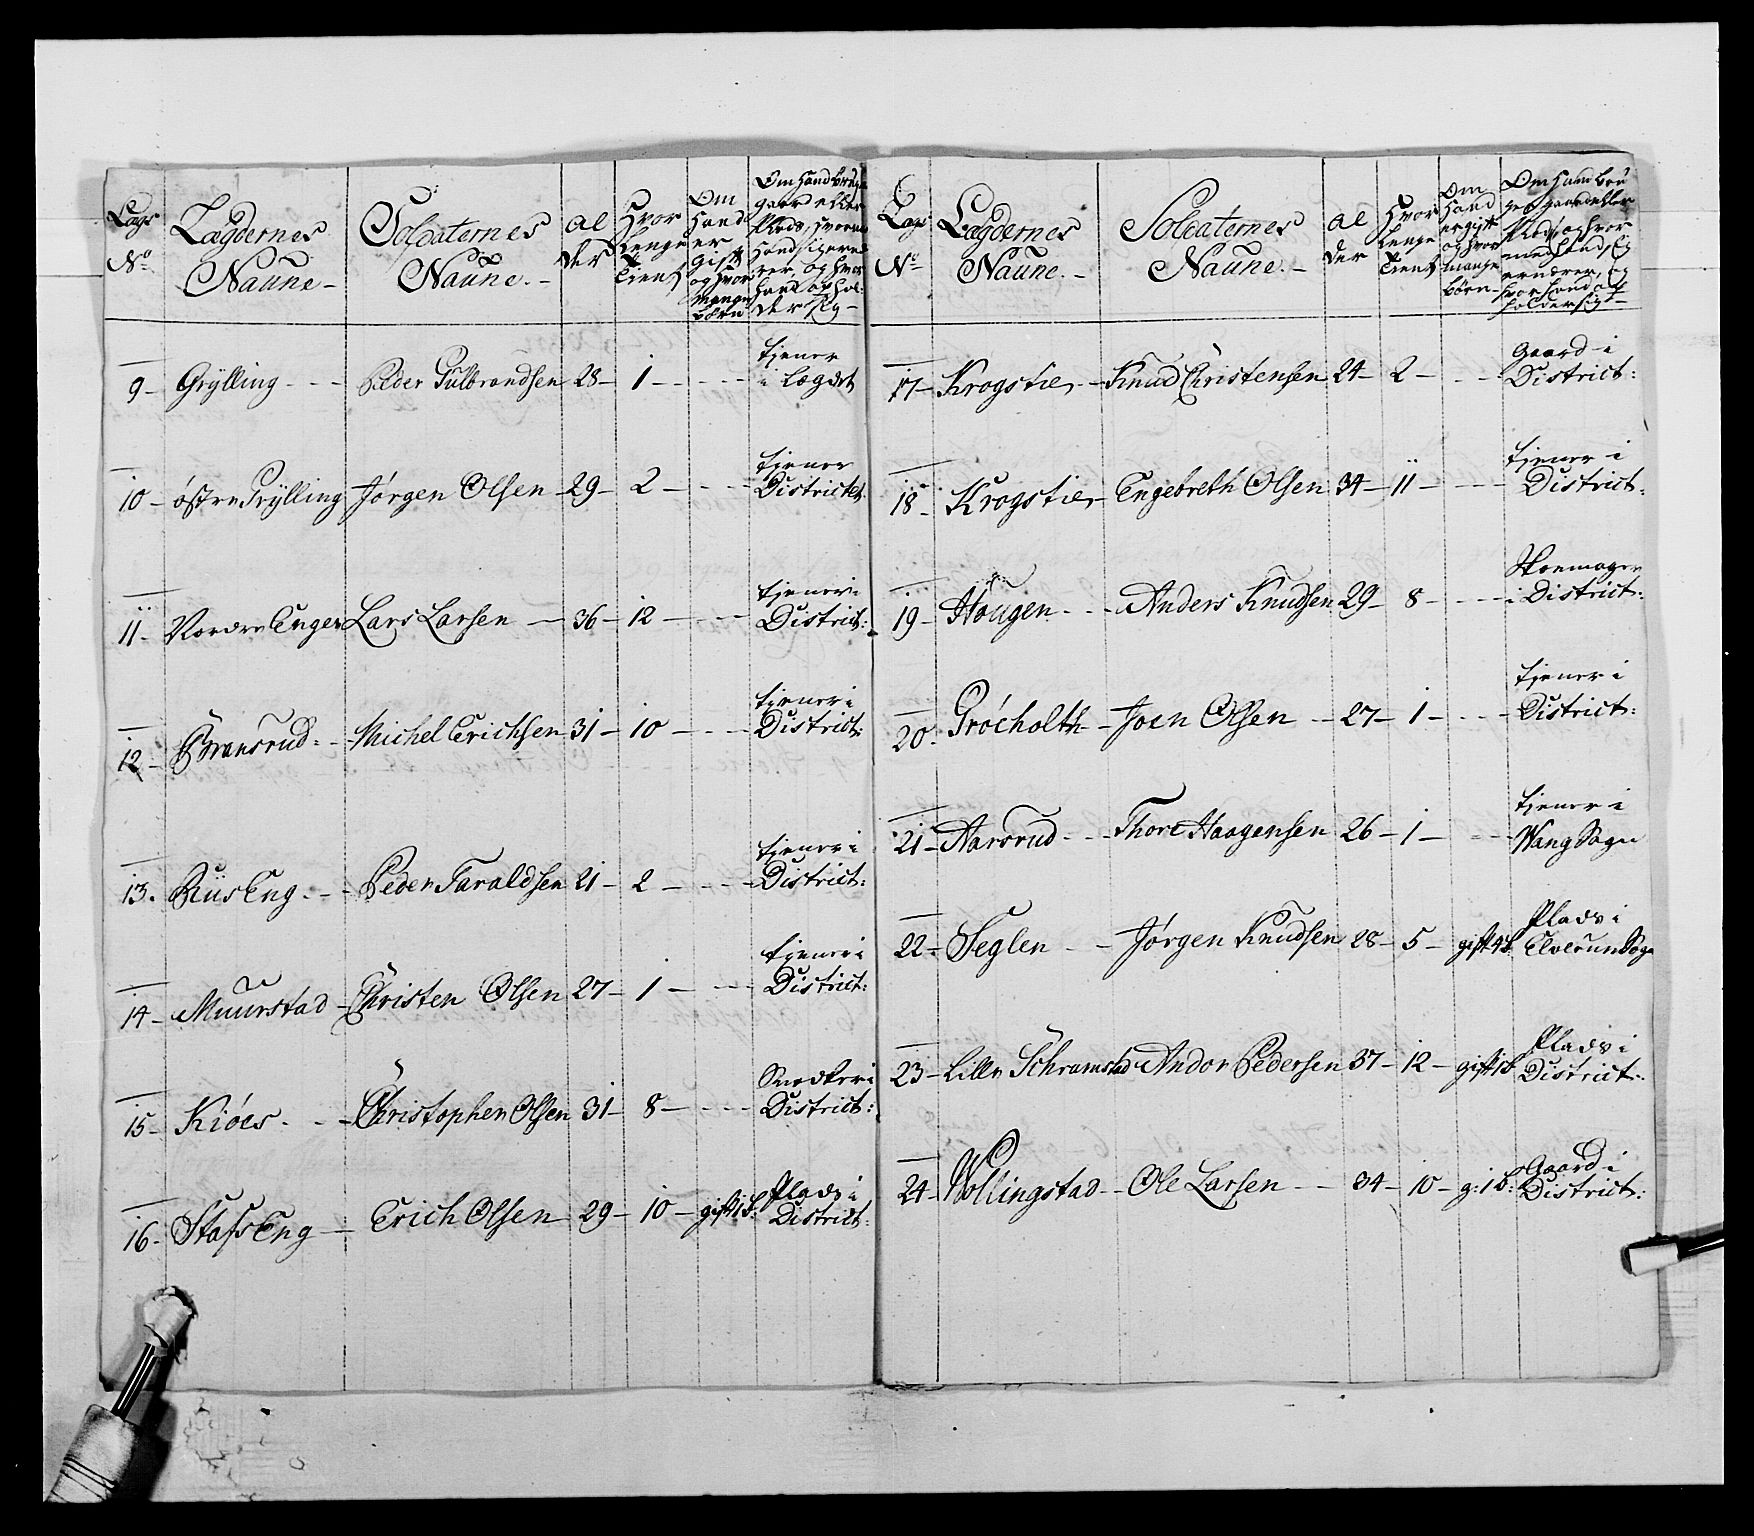 Lægs No | Lægdernes Naune | Soldaternes Naune | alder | Hvor lenge tient | Om hand er gift og hvor mange børn | Om hand bruger gaard eller Plads, hvormed hand sig ernærer, og hvor hand opholder sig
9 – Grylling – – – Peder Gulbrandsen 28 – 1 – – – – – tjener i Lægdet
10 – østre Grylling Jørgen Olsen – 29 – 2 – – – – tjener Districtet
11 – Nordre Enger Lars Larsen – 36 – 12 – – – – tjener i District:
12 – – Michel Erichsen 31 – 10 – – – – tjener i District:
13. Riis Eng. – – Peder Taraldsen 21 – 2 – – – – tjener i District:
14 – Muurstad – Christen Olsen 27 – 1 – – – – tjener i District:
15 – Kiøes. – – Christopher Olsen 31 – 8 – – – – Snedker i District:
16 – Stafs Eng – Erich Olsen – 29 – 10 – gift 1 b: Plads i District:
Lægs No | Lægdernes Naune. | Soldaternes Naune. | alder | Hvor lenge tient | Om hand er gift og hvor mange børn | Om hand bruger gaard eller Plads, og hvormed hand sig ernærer, og hvor hand opholder sig
17 – Krogstie, – Knud Christensen 24 – 2 – – – – Gaard i District:
18 – Krogstie, – Engebreth Olsen 34 – 11 – – – – tjener i District:
19 – Haugen – – – Anders Knudsen 29 – 8 – – – – Skoemager i District:
20. Grøcholth – Joen Olsen – – 27 – 1 – – – – tjener i District:
21 – Aarsrud – – – Thore Haagensen 26 – 1 – – – – tjener i Wang Sogn
22 – Seglen – – Jørgen Knudsen 28 – 5 – gift 4 b: Plads i Elverum Sogn
23 – Lille Schramstad Andor Pedersen 37 – 12 – gift 1 b Plads i District:
24 – Wollingstad – – Ole Larsen – – 34 – 10 – g: 1 b: Gaard i District: